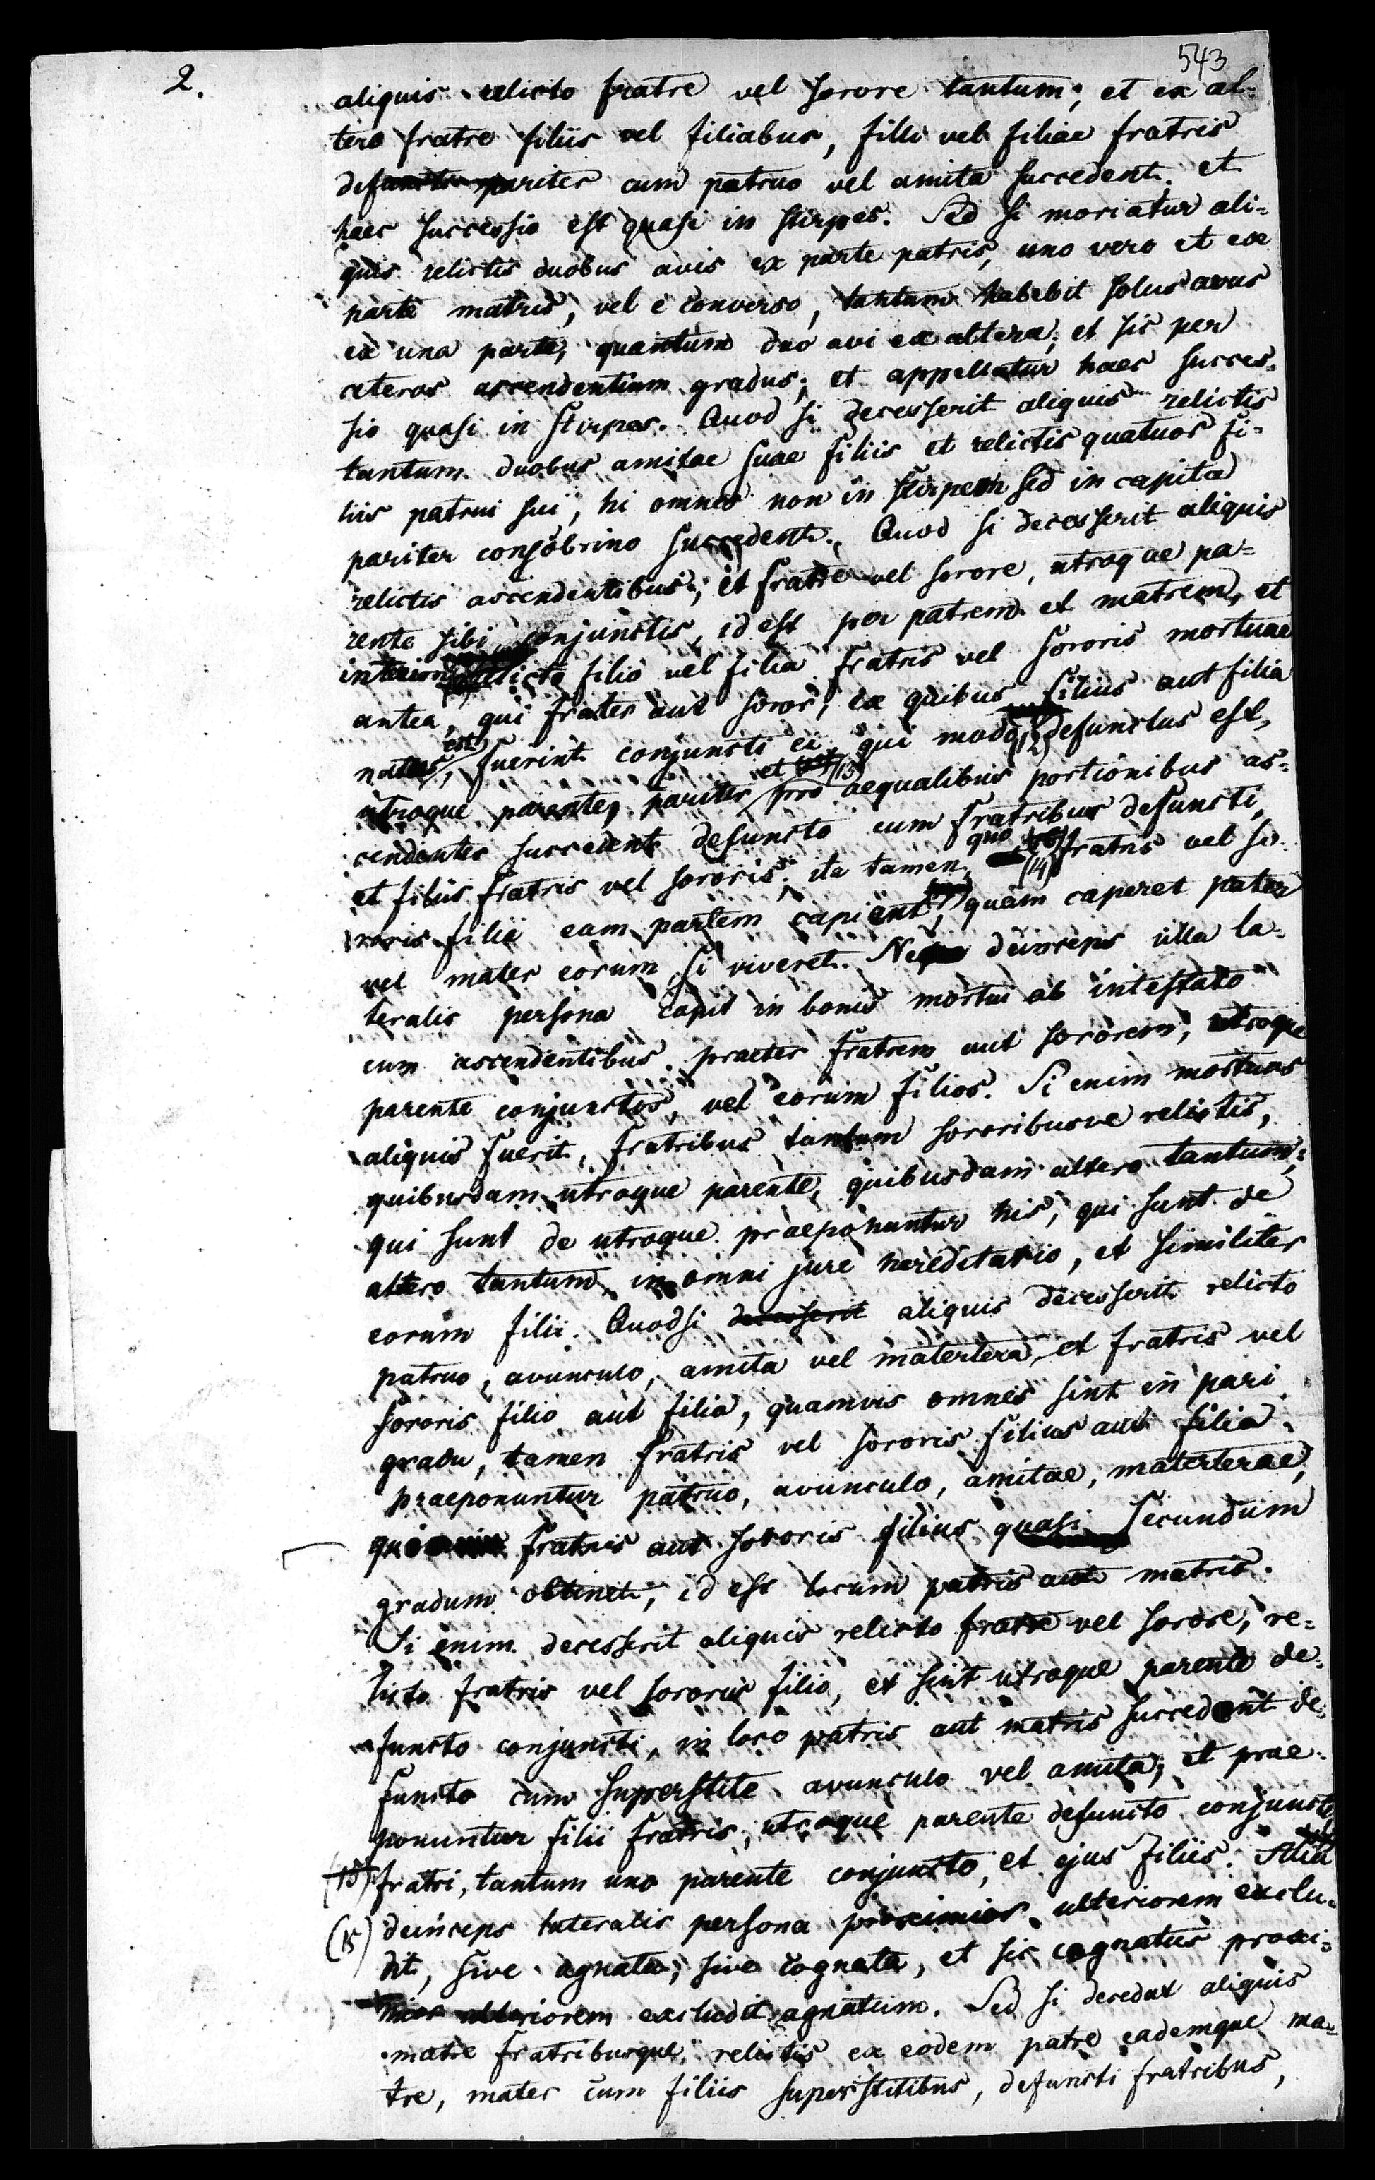 543
2.
aliquis relicto fratre vel sorore tantum; et ex al-
tero fratre filiis vel filiabus, filii vel filiae fratris
defuncti pariter cum patruo vel amita succedent, et
haec successio est quasi in stirpes. Sed si moriatur ali-
quis relictis duobus avis ex parte patris, uno vero et ex
parte matris, vel e converso, tantum habebit solus avus
ex una parte, quantum duo avi ex altera; et sic per
ceteros ascendentium gradus; et appellatur haec succes-
sio quasi in stirpes. Quod si decesserit aliquis relictis
tantum duobus amitae suae filiis et relictis quatuor fi-
liis patrui sui, hi omnes non in stirpem sed in capita
pariter consobrino succedent. Quod si decesserit aliquis
relictis ascendentibus; et fratre vel sorore, utroque pa-
rente sibi conjunctis, id est per patrem et matrem, et
interim relicto filio vel filia fratris vel sororis mortuae
antea, qui frater aut soror, ex quibus filius aut filia
natus est, fuerint conjuncti ei, qui modo (12) defunctus est,
utroque parente, pariter et (13) pro aequalibus portionibus as-
cendentes succedent defuncto cum fratribus defuncti,
et filiis fratris vel sororis; ita tamen, quo (14) fratris vel so-
roris filii eam partem capient, quam caperet pater
vel mater eorum si viveret. Neque deinceps ulla la-
teralis persona capit in bonis mortui ab intestato
cum ascendentibus praeter fratrem aut sororem, utroque
parente conjunctos, vel eorum filios. Si enim mortuus
aliquis fuerit, fratribus tantum sororibusve relictis,
quibusdam utroque parente, quibusdam altero tantum;
qui sunt de utroque praeponuntur his, qui sunt de
altero tantum in omni jure hereditario, et similiter
eorum filii. Quodsi decesserit aliquis decesserit relicto
patruo, avunculo, amita vel matertera, et fratris vel
sororis filio aut filia, quamvis omnes sint in pari
gradu, tamen fratris vel sororis filius aut filia
praeponuntur patruo, avunculo, amitae, materterae,
fratris aut sororis filius quasi secundum
gradum obtinet, id est locum patris aut matris.
Si enim decesserit aliquis relicto fratre vel sorore, re-
licto fratris vel sororis filio, et sint utroque parente de-
functo conjuncti, in loco patris aut matris succedent de-
functo cum superstite avunculo vel amita; et prae-
ponuntur filii fratris, utroque parente defuncto conjuncti
(15) fratri, tantum uno parente conjuncto, et ejus filiis. Alia
(15) deinceps lateralis persona proximior ulteriorem exclu-
dit, sive agnata, sive cognata, et sic cognatus proxi-
mior ulteriorem excludit agnatum. Sed si decedat aliquis
matre fratribusque relictis ex eodem patre eademque ma-
tre, mater cum filiis superstitibus, defuncti fratribus,